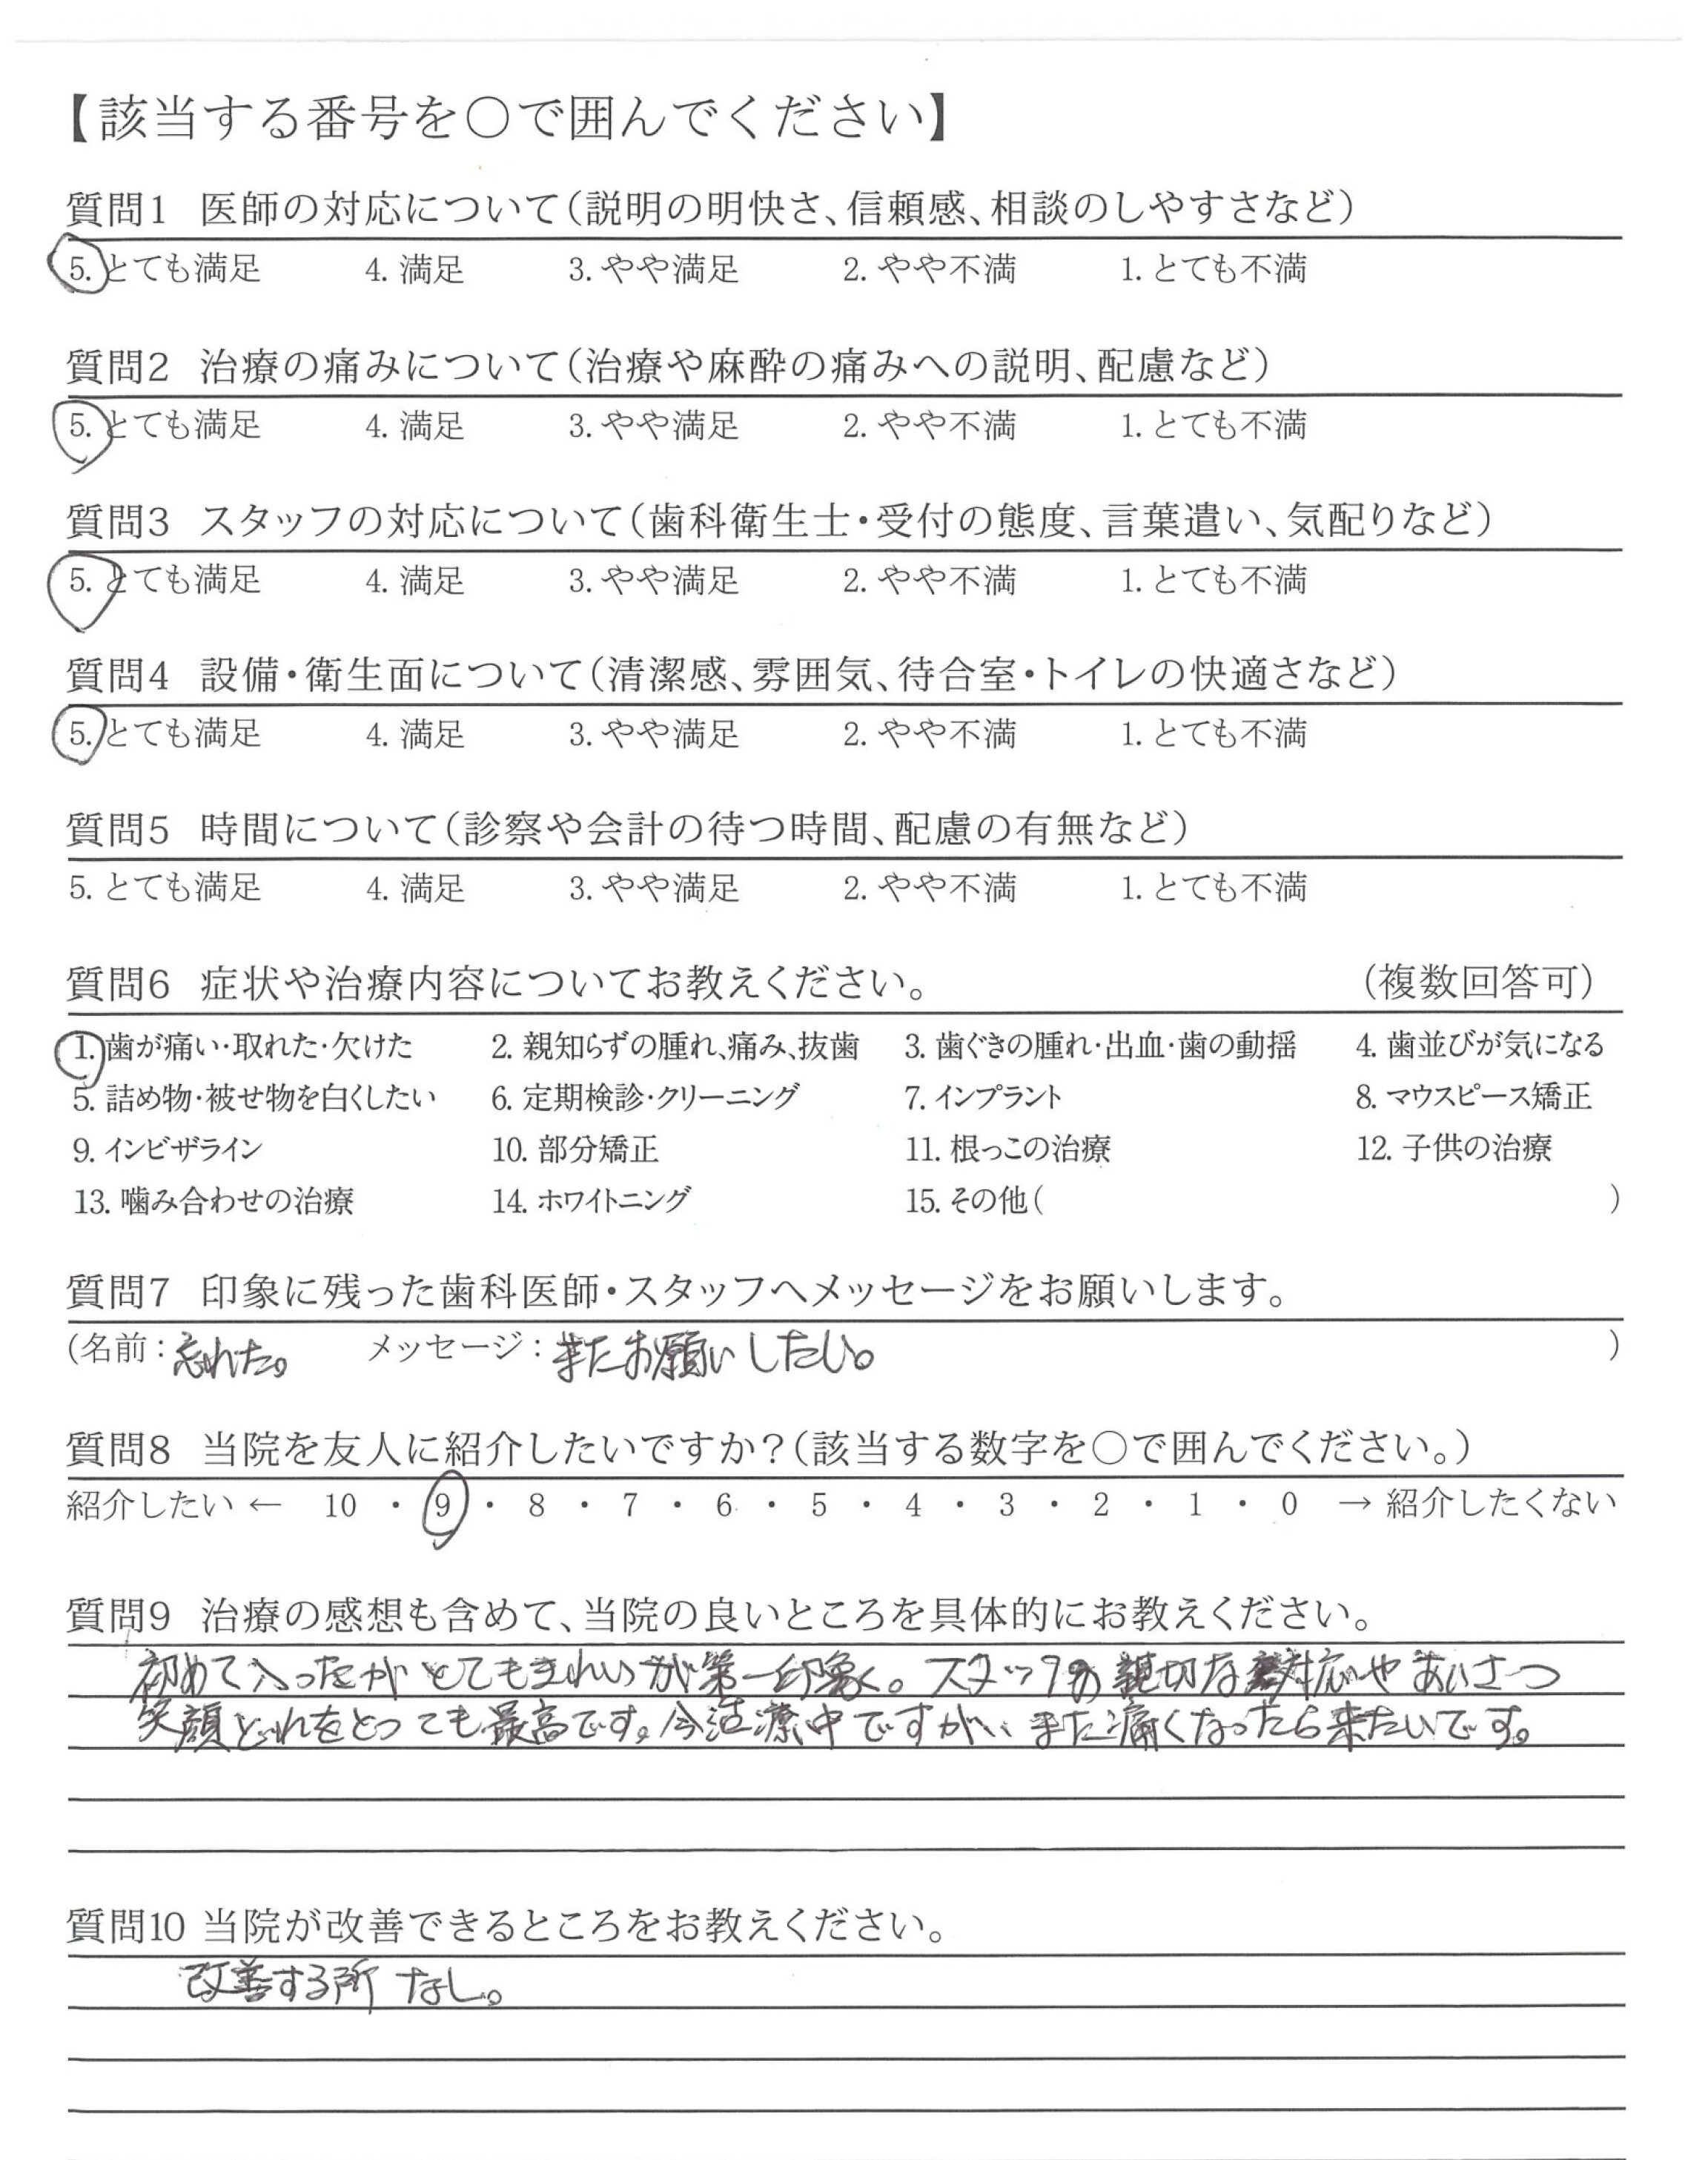 【該当する番号を○で囲んでください】
質問1 医師の対応について(説明の明快さ、信頼感、相談のしやすさなど)
5. とても満足 4. 満足 3. やや満足 2. やや不満 1. とても不満
質問2 治療の痛みについて(治療や麻酔の痛みへの説明、配慮など)
5. とても満足 4. 満足 3. やや満足 2. やや不満 1. とても不満
質問3 スタッフの対応について(歯科衛生士・受付の態度、言葉遣い、気配りなど)
5. とても満足 4. 満足 3. やや満足 2. やや不満 1. とても不満
質問4 設備・衛生面について(清潔感、雰囲気、待合室・トイレの快適さなど)
5. とても満足 4. 満足 3. やや満足 2. やや不満 1. とても不満
質問5 時間について(診察や会計の待つ時間、配慮の有無など)
5. とても満足 4. 満足 3. やや満足 2. やや不満 1. とても不満
質問6 症状や治療内容についてお教えください。 (複数回答可)
1. 歯が痛い・取れた・欠けた 2. 親知らずの腫れ、痛み、抜歯 3. 歯ぐきの腫れ・出血・歯の動揺 4. 歯並びが気になる
5. 詰め物・被せ物を白くしたい 6. 定期検診・クリーニング 7. インプラント 8. マウスピース矯正
9. インビザライン 10. 部分矯正 11. 根っこの治療 12. 子供の治療
13. 噛み合わせの治療 14. ホワイトニング 15. その他( )
質問7 印象に残った歯科医師・スタッフへメッセージをお願いします。
(名前:忘れた。 メッセージ:またお願いしたい。 )
質問8 当院を友人に紹介したいですか?(該当する数字を○で囲んでください。)
紹介したい ← 10 ・ 9 ・ 8 ・ 7 ・ 6 ・ 5 ・ 4 ・ 3 ・ 2 ・ 1 ・ 0 → 紹介したくない
質問9 治療の感想も含めて、当院の良いところを具体的にお教えください。
初めて入ったがとてもきれいが第一印象。スタッフの親切な対応やあいさつ
笑顔どれをとっても最高です。今治療中ですが、また痛くなったら来たいです。
質問10 当院が改善できるところをお教えください。
改善する所なし。